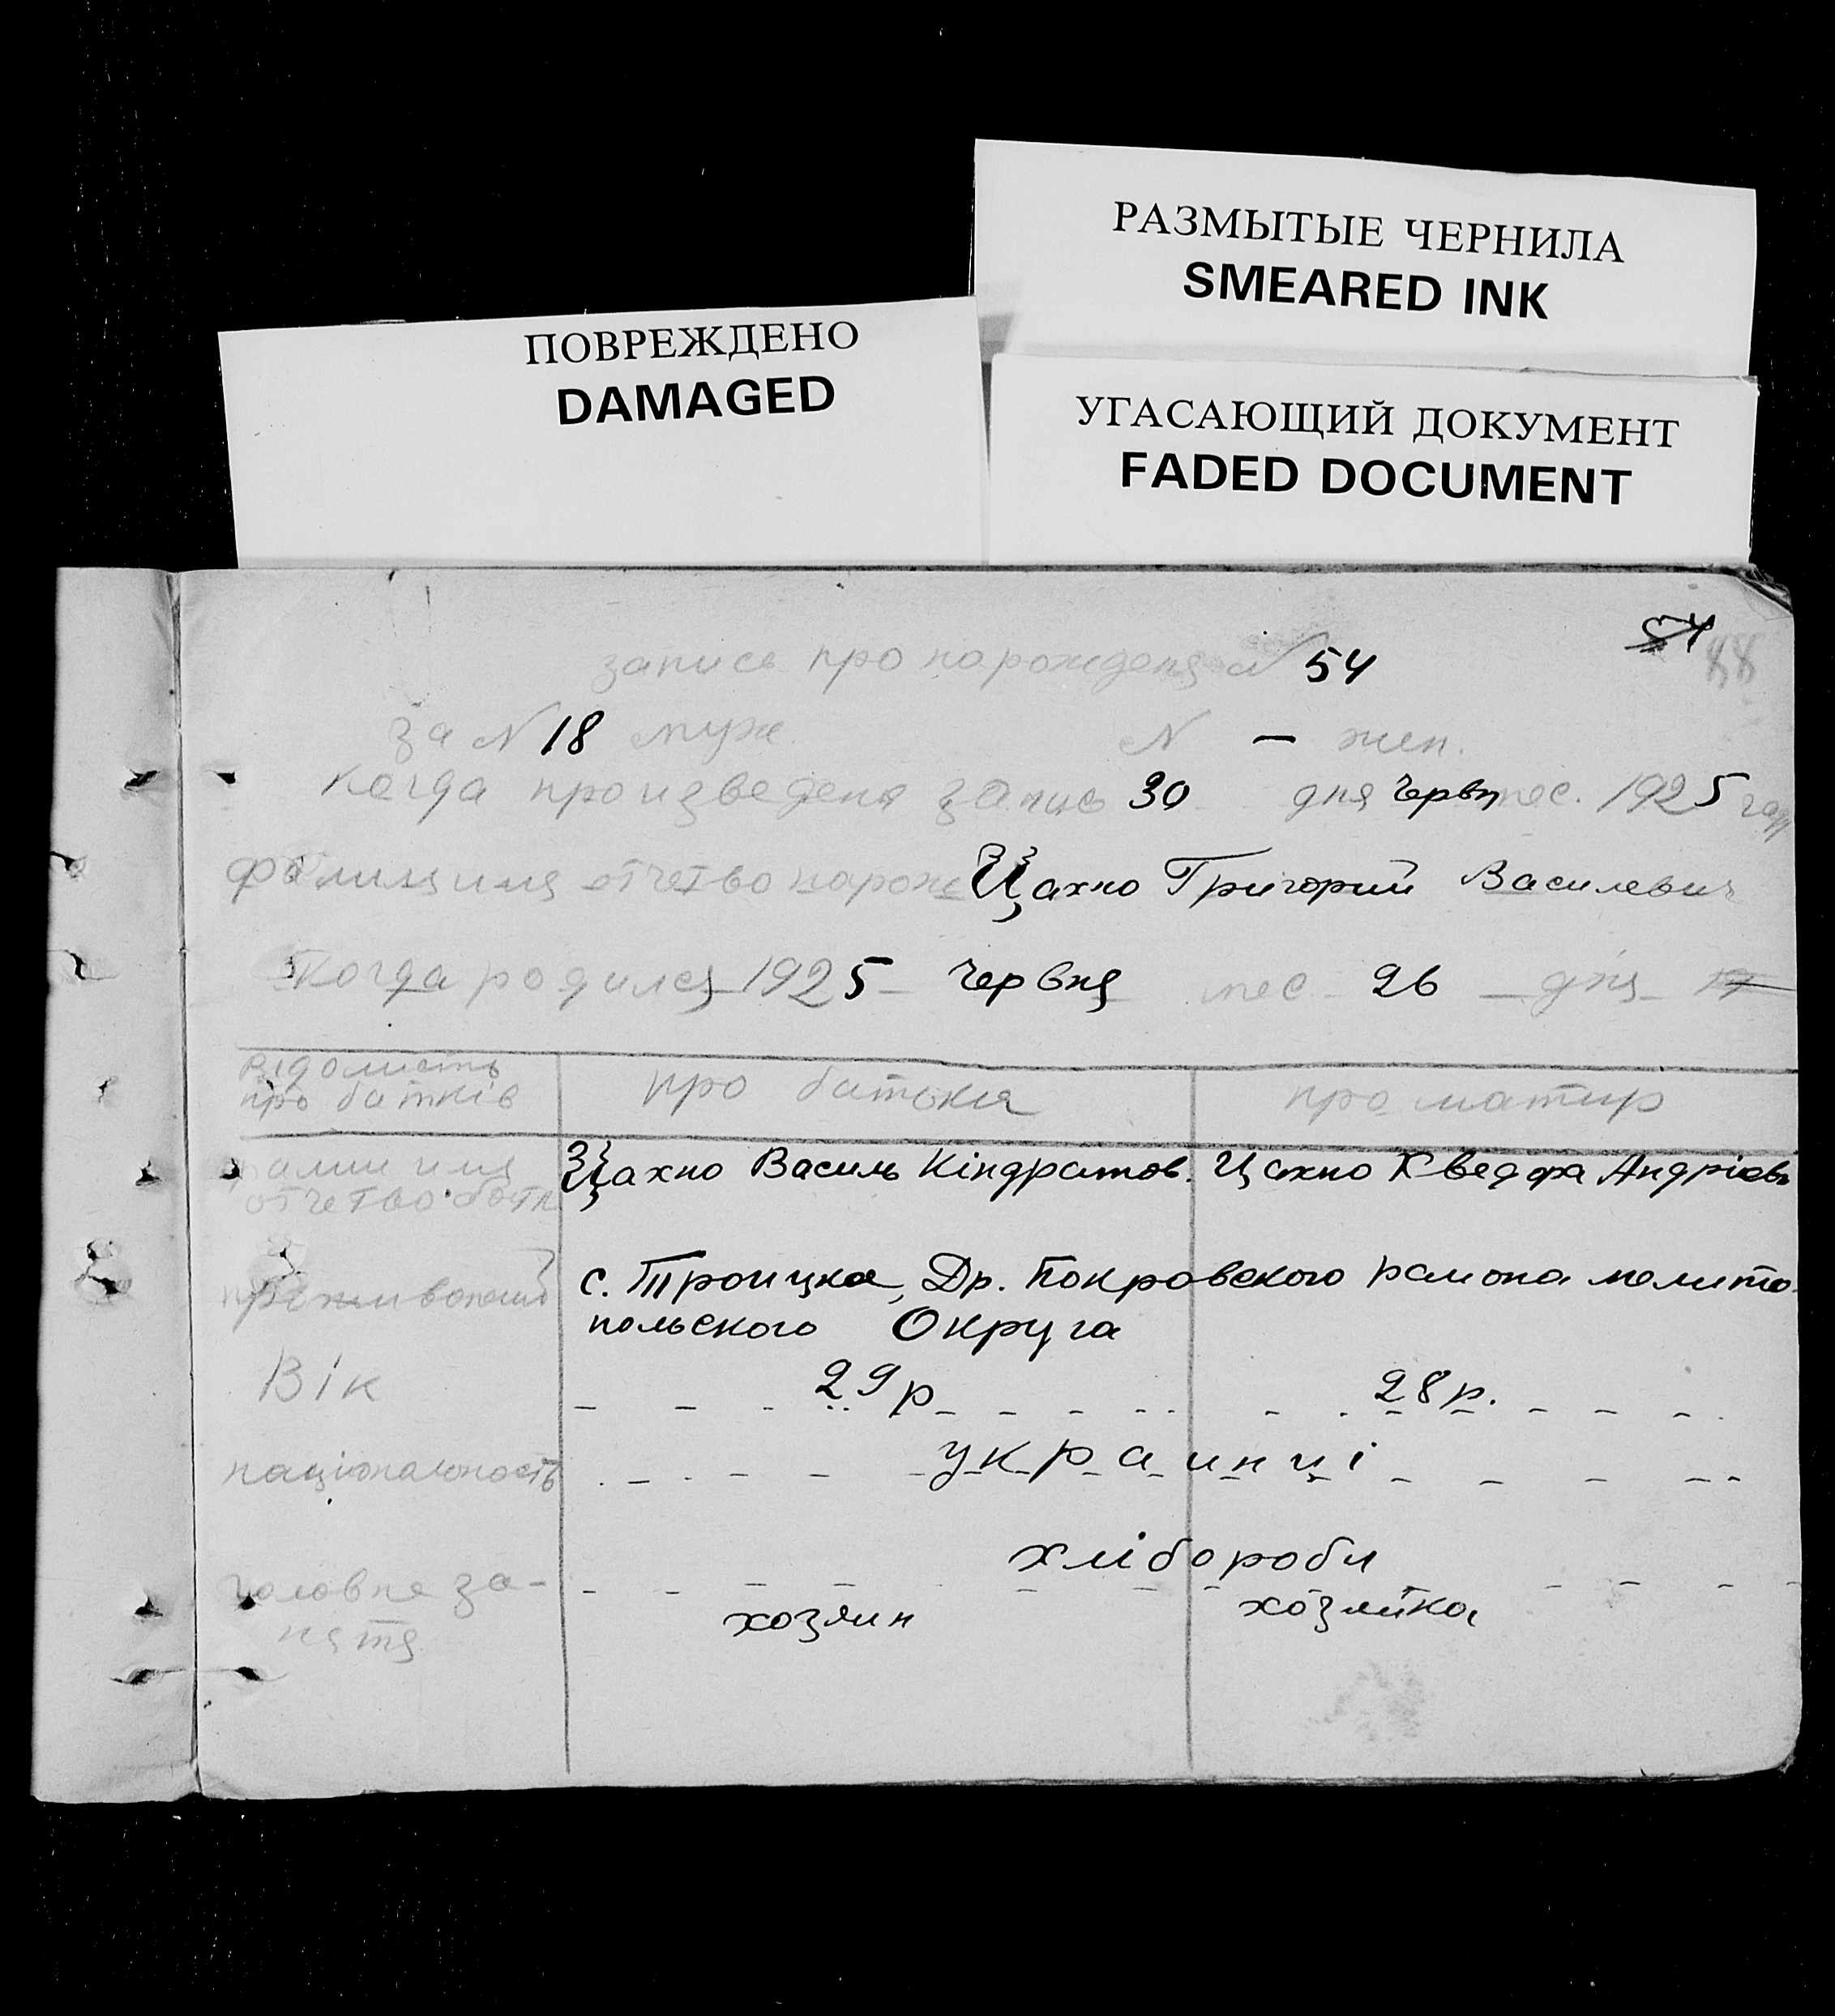 РАЗМЫТЫЕ ЧЕРНИЛА
SMEARED INK
ПОВРЕЖДЕНО
DAMAGED
УГАСАЮЩИЙ ДОКУМЕНТ
FADED DOCUMENT
54 88
запись про нарождения N 54
за N 18 муж. N — жен.
Когда произведена запис 30 дня червн мес. 1925 году
фамилия имя отчетво нарож Цахно Григорий Василевич
Когда родился 1925 — червня мес 26 — дня
відомисть
про батків
про батька
про матир
фамии имя
отчетво батк
Цахно Василь Кіндратов.
Цахно Кведора Андріевн
проживаний
с. Троицка, Др. Покровского раиона мелито
польского Округа
Вік
29 р
28 р.
національность
украинці
головне за-
нятя
хлібороби
хозяин
хозяйка